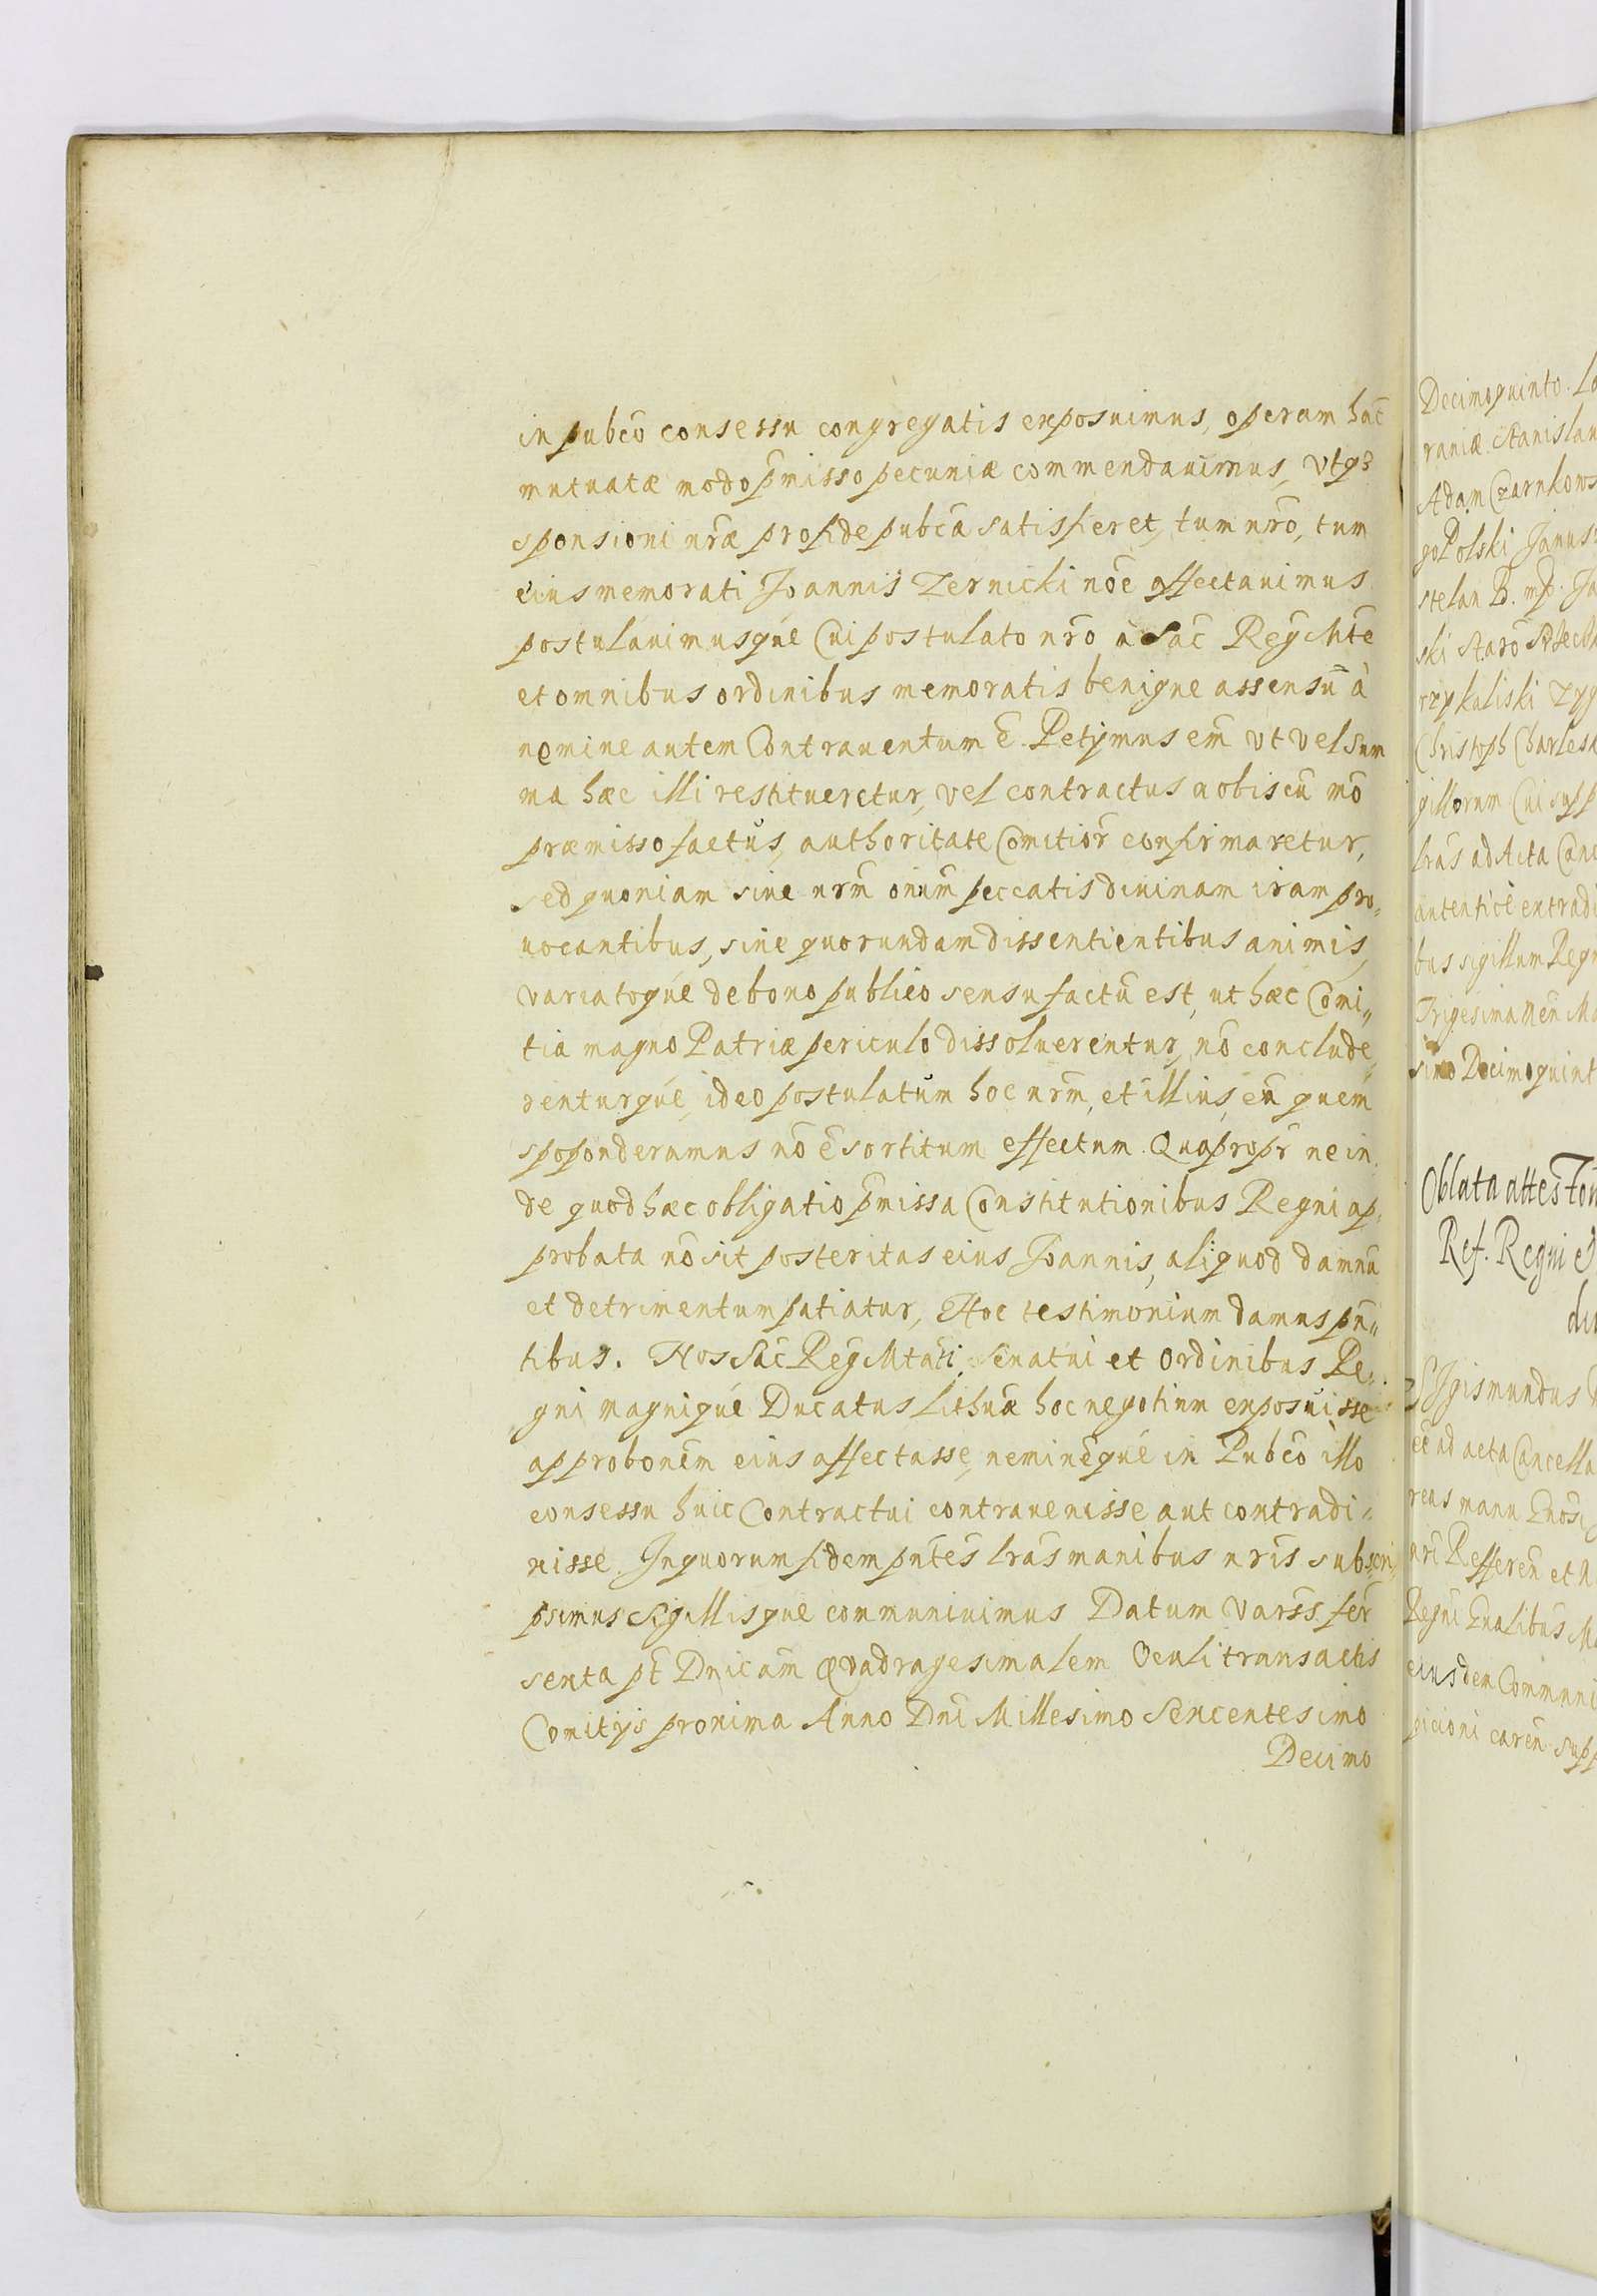 in pubco consessu congregatis exposuimus, operam hac
mutuatæ modo pmisso pecuniæ commendauimus, Vtq3
sponsioni nræ pro fide pubca satisfieret, tum nro, tum
eius memorati Joannis Zernicki noe affectauimus
postulauimusque Cui postulato nro, a Sac Reg Mte
et omnibus ordinibus memoratis benigne assensu a
nemine autem Contrauentum e. Petymus em vt vel sum
ma hæc illi restitueretur, vel contractus nobiscu mo
præmisso factus, authoritate Comitior confirmaretur,
sed quoniam siue nrm onium peccatis diuinam iram pro,,
uocantibus, siue quorundam dissentientibus animis,
variatoque de bono publico sensu factu est, ut hæc Comi,,
tia magno Patriæ periculo dissoluerentur, no conclude,,
renturque, ideo postulatum hoc nrm, et illius, cu quem
spoponderamus no e sortitum effectum. Quapropr ne in
de quod hæc obligatio pmissa Constitutionibus Regni ap,
probata no sit posteritas eius Joannis, aliquod damnu
et detrimentum patiatur, Hoc testimonium damus pn,,
tibus. Nos Sac Reg Mtati, Senatui et Ordinibus Re,
gni magnique Ducatus Lithuæ hoc negotium exposuisse
approbonem eius affectasse, nemineque in Pubco illo
consessu huic Contractui contrauenisse aut contradi,
xisse. In quorum fidem pntes lras manibus nris subscri,
psimus Sigillisque communiuimus Datum Varss. fer
sexta pt Dnicam Qvadragesimalem Oculi transactis
Comitijs proxima Anno Dni Millesimo Sexcentesimo
Decimo
Decimoquinto.
raniæ. Stanislau
Adam Czarnkows
go Polski Janus
stelan B. mp. Ja
ski Staro
rzykaliski Zyg
Christoph Charlesz
gillorum Cui sup
lras ad Acta Canc
autentice extradi
bus sigillum Regn
Trigesima Men Ma
simo Decimoquint
Oblata attes
Ref. Regni
Sigismundus
ad acta Cancella
reus manu
nri Refferen et
Regni
eiusdem Communi
picioni caren supp